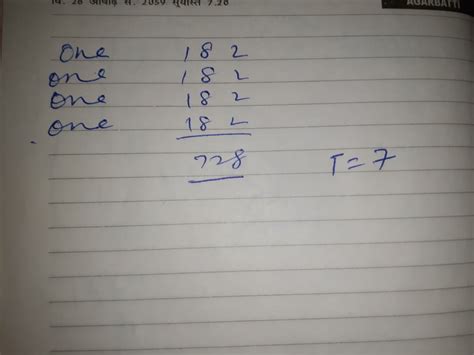 वि. 28 आषाढ़ सं. 2059 सूर्यास्त 7.20 AGARBATTI
One 182
One 182
One 182
One 182
728 T=7